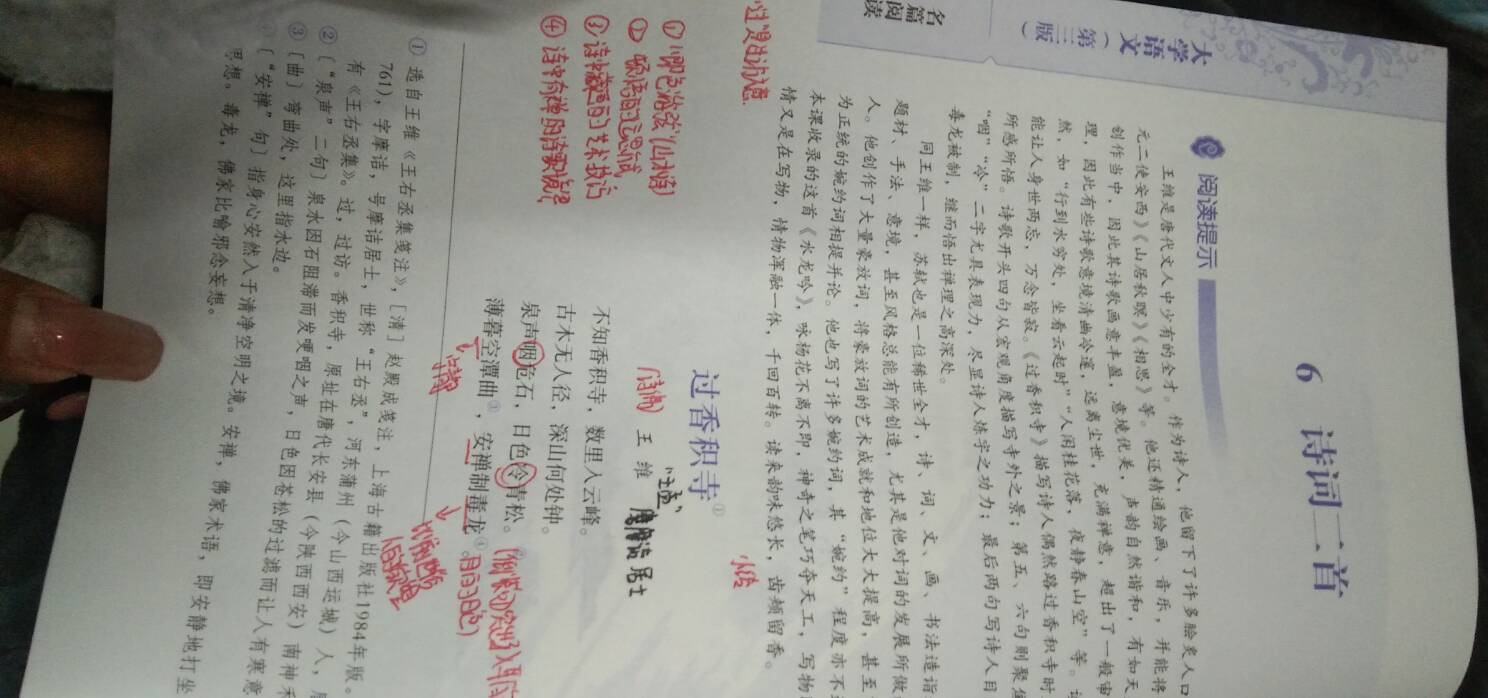 大学语文（第三版）
名篇阅读
6 诗词二首
阅读提示
王维是唐代文人中少有的全才。作为诗人，他留下了许多脍炙人口
元二使安西》《山居秋暝》《相思》等。他还精通绘画、音乐，并能将
创作当中，因此其诗歌画意丰盈，意境优美，声韵自然谐和，有如天
理，因此有些诗歌意境清幽冷邃，远离尘世，充满禅意，超出了一般宙
然，如“行到水穷处，坐看云起时”“人闲桂花落，夜静春山空”等。
能让人身世两忘，万念皆寂。《过香积寺》描写诗人偶然路过香积寺时
所感所悟。诗歌开头四句从宏观角度描写寺外之景；第五、六句则聚焦
“咽”“冷”二字尤具表现力，尽显诗人炼字之功力；最后两句写诗人目
毒龙被制，继而悟出禅理之高深处。
同王维一样，苏轼也是一位稀世全才，诗、词、文、画、书法造诣
题材、手法、意境，甚至风格总能有所创造，尤其是他对词的发展所做
人。他创作了大量豪放词，将豪放词的艺术成就和地位大大提高，甚至
为正统的婉约词相提并论。他也写了许多婉约词，其“婉约”程度亦不
本课收录的这首《水龙吟》，咏杨花不离不即，神奇之笔巧夺天工，写物
情又是在写物，情物浑融一体，千回百转。读来韵味悠长，齿颊留香。
过香积寺①
（诗佛）王维 摩诘居士
不知香积寺，数里入云峰。
古木无人径，深山何处钟。
泉声咽危石，日色冷青松。
薄暮空潭曲③，安禅制毒龙④。
① 选自王维《王右丞集笺注》，[清]赵殿成笺注，上海古籍出版社1984年版。
761)，字摩诘，号摩诘居士，世称“王右丞”，河东蒲州（今山西运城）人，
有《王右丞集》。过，过访。香积寺，原址在唐代长安县（今陕西西安）南神禾
② [“泉声”二句] 泉水因石阻滞而发哽咽之声，日色因苍松的过滤而让人有寒意
③ [曲] 弯曲处，这里指水边。
[“安禅”句] 指身心安然入于清净空明之境。安禅，佛家术语，即安静地打坐
思想。毒龙，佛家比喻邪念妄想。